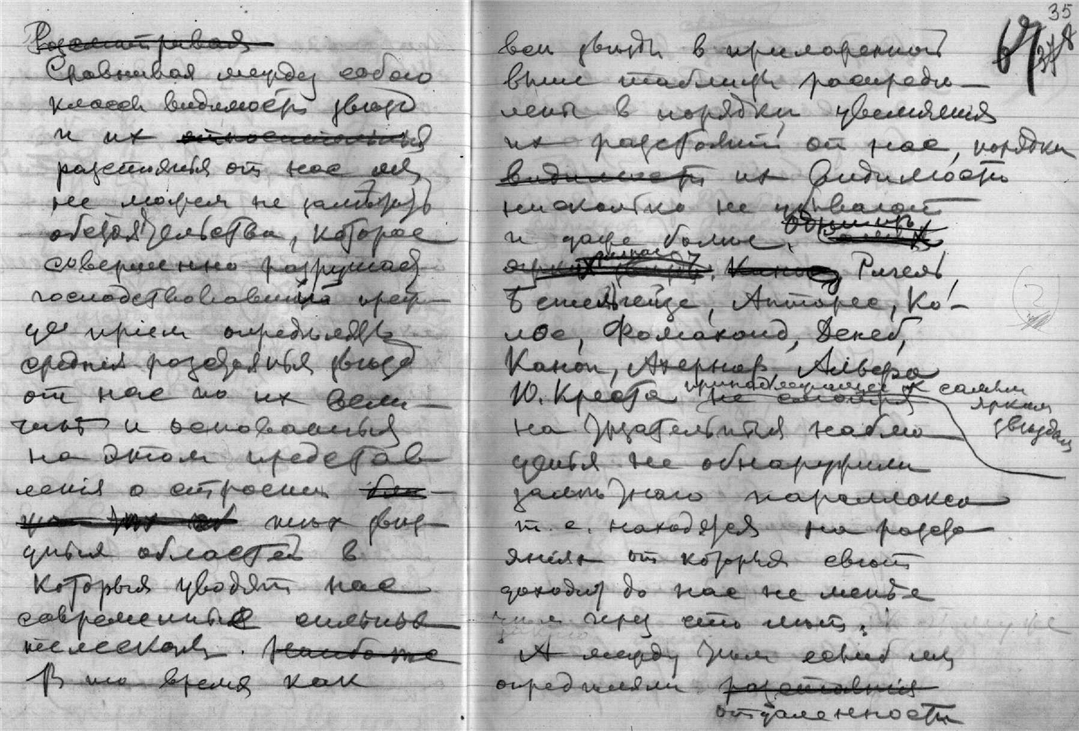 Рассматривая
Сравнивая между собою
классы видимости звезд
и их относительныя
разстоянья от нас мы
не можем не заметить
обстоятельства, которое
совершенно разрушает
господствовавший преж-
де прием определять
средния разстоянья звезд
от нас по их вели-
чине и основанныя
на этом представ-
ления о строении
тех звезд-
ных областей в
которыя уводят нас
современные сильные
телескопы. Наиболее
В то время как
35
все звезды в приложенной
выше таблице распреде-
лены в порядке увеличения
их разстояний от нас, порядки
видимости их видимости
нисколько не
и даже более,
Ригель,
Бетельгейзе, Антарес, Ко-
лос, Фомальгонд, Денеб,
Каноп, Ахернар, Альфа
Ю. Креста принадлежащие к самым
ярким
звездам
не смотря
на тщательныя наблю-
денья не обнаружили
заметнаго параллакса
т. е. находятся на разсто-
яниях от которых свет
доходит до нас не менее
чем через сто лет.
А между тем если бы мы
определяли разстояния
отдаленности